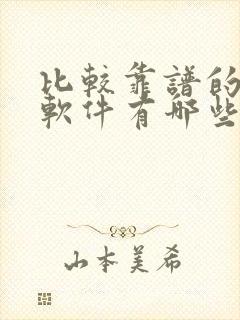 比較靠譜的
軟件有哪些
山本美希